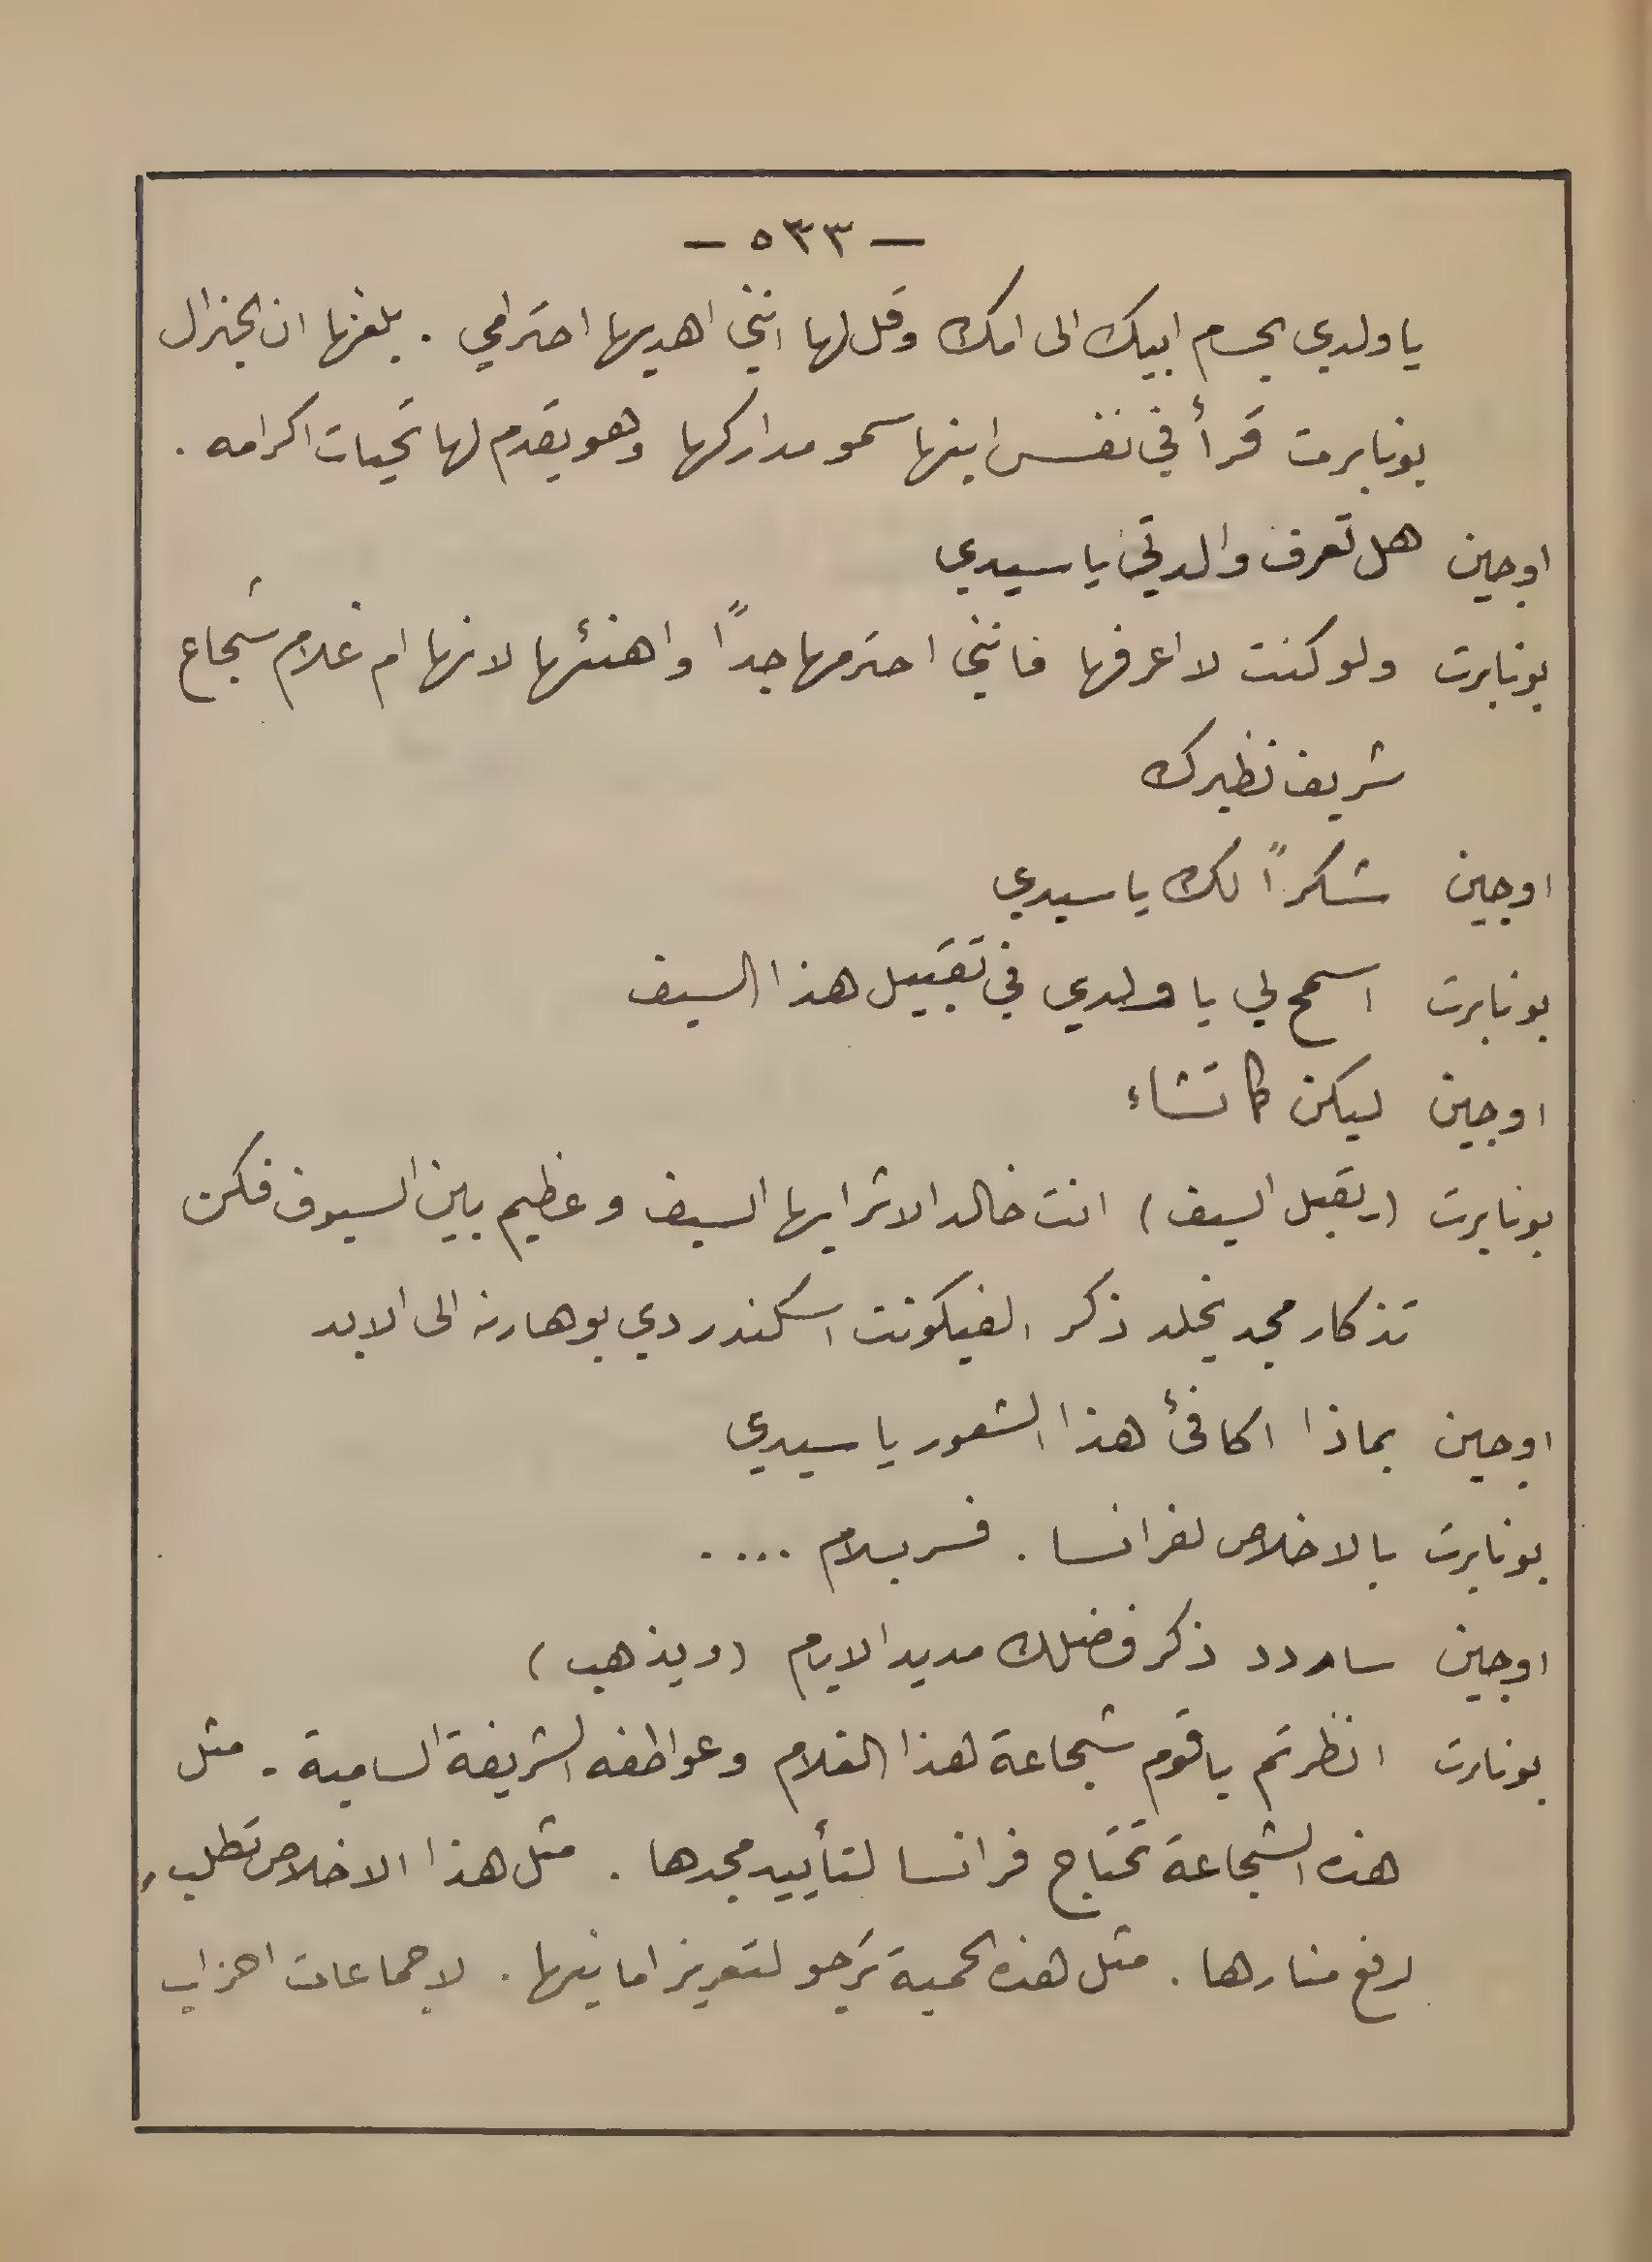 — ٥٣٣ —
يا ولدي بحسام ابيك الى امك وقل لها انني اهديها احترامي . بلغها ان الجنرال
بونابرت قرأ في نفس ابنها سمو مداركها وهو يقدم لها تحيات اكرامه .
اوجين هل تعرف والدتي يا سيدي
بونابرت ولو كنت لا اعرفها فانني احترمها جداً واهنئها لانها ام غلام شجاع
شريف نظيرك
اوجين شكراً لك يا سيدي
بونابرت اسمح لي يا ولدي في تقبيل هذا السيف
اوجين ليكن كما تشاء
بونابرت (يقبل السيف) انت خالد الاثر ايها السيف وعظيم بين السيوف فكن
تذكار مجد يخلد ذكر الفيكونت اسكندر دي بوهارنه الى الابد
اوجين بماذا اكافئ هذا الشعور يا سيدي
بونابرت بالاخلاص لفرانسا . فسر بسلام ....
اوجين ساردد ذكر فضلك مديد الايام (ويذهب)
بونابرت انظرتم يا قوم شجاعة هذا الغلام وعواطفه الشريفة السامية . مثل
هذه الشجاعة تحتاج فرانسا لتأييد مجدها . مثل هذا الاخلاص تطلب
لرفع منارها . مثل هذه الحمية ترجو لتعزيز امانيها . لا جماعات احزاب